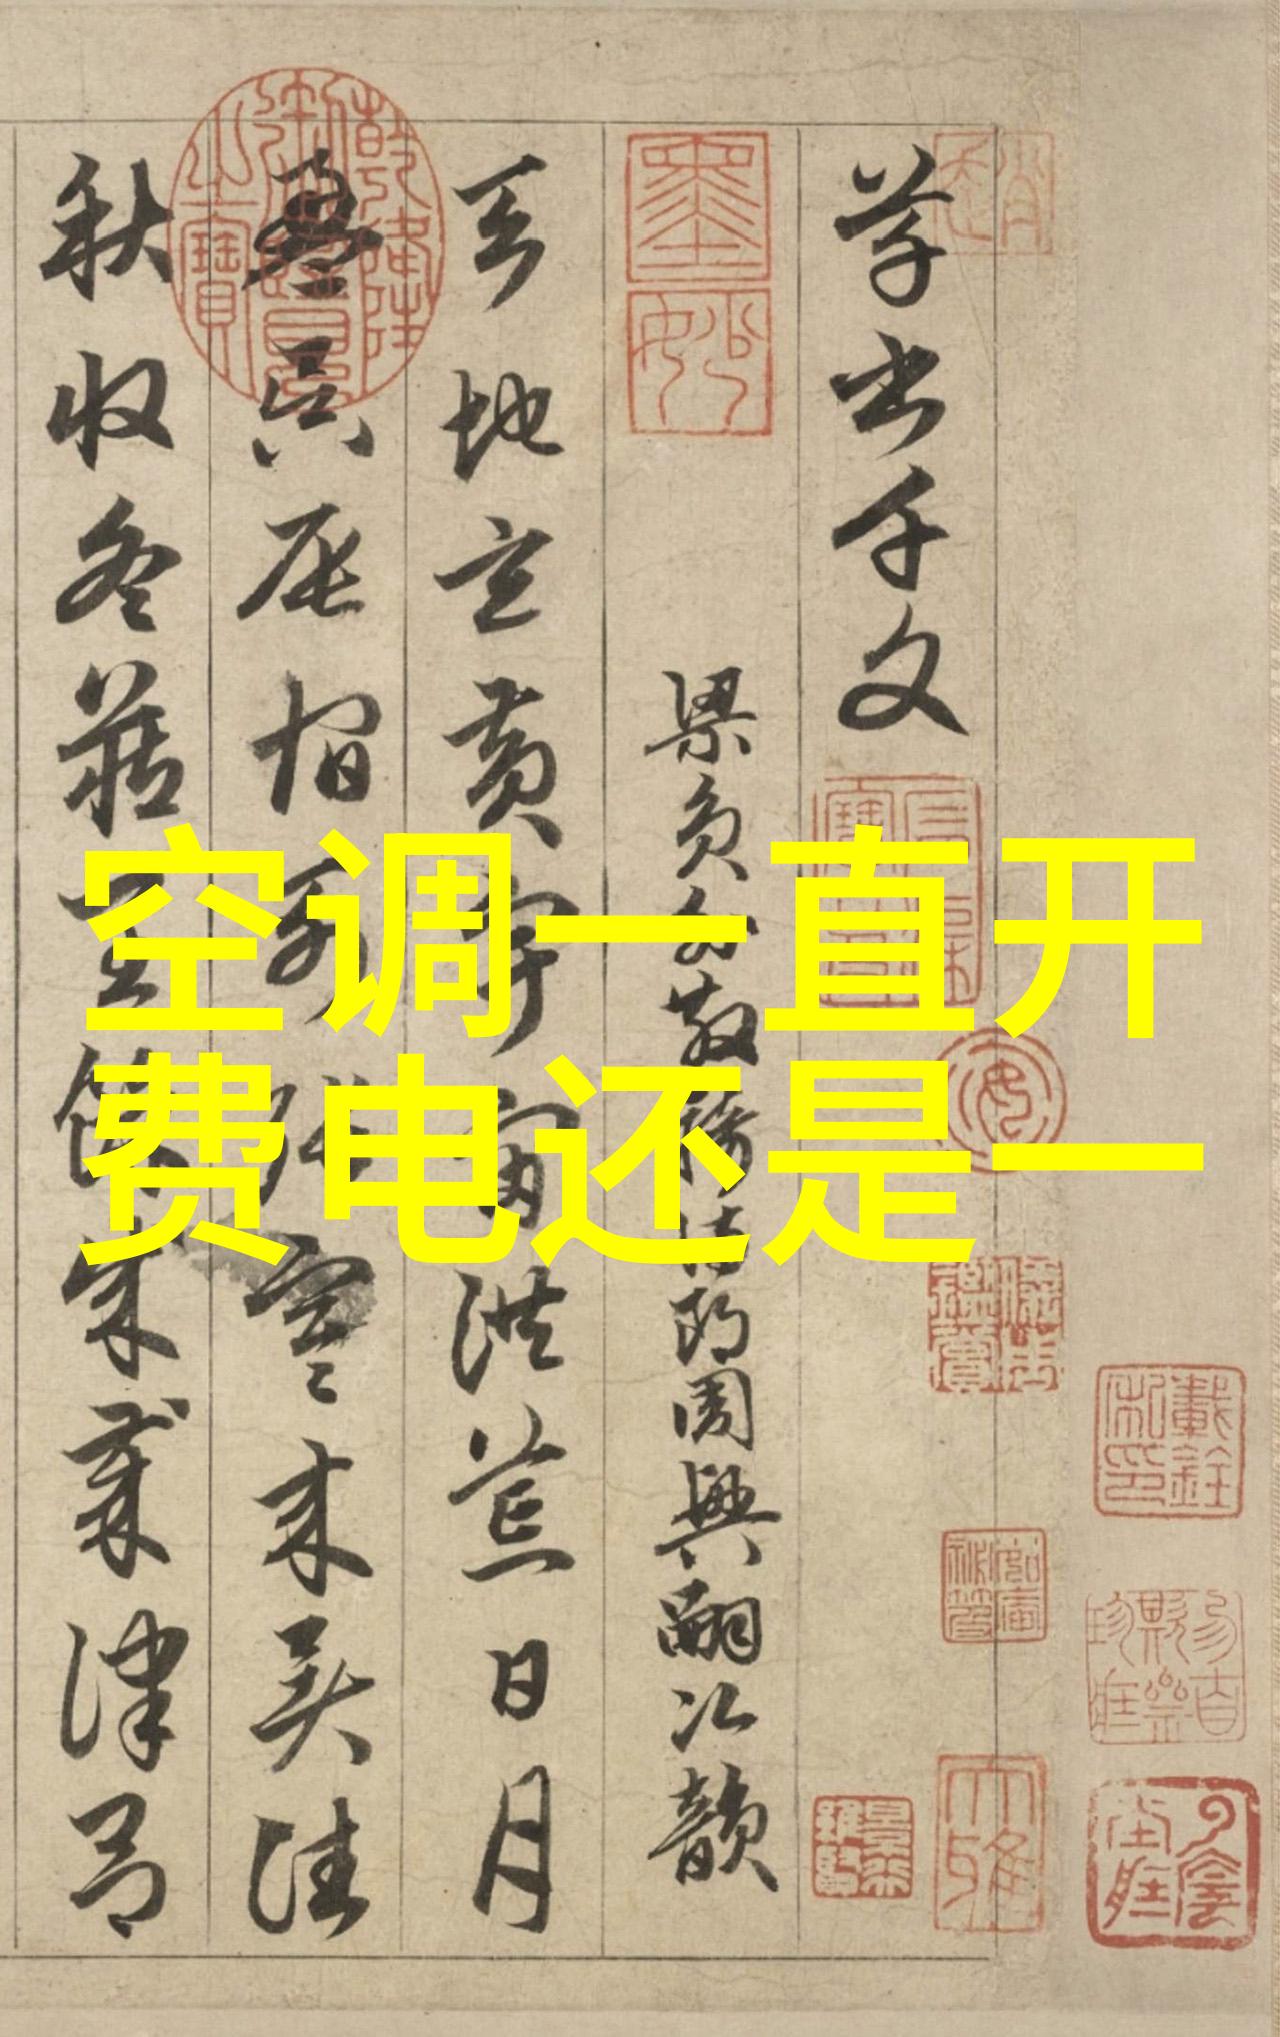 空调一直开
费电还是一
草書千文
墨妙
梁員外散騎侍郎周興嗣次韻
天地玄黃宇宙洪荒日月
盈昃辰宿列張寒來暑往
乾隆御覽之寶
秋收冬藏閏餘成歲律呂
大雅